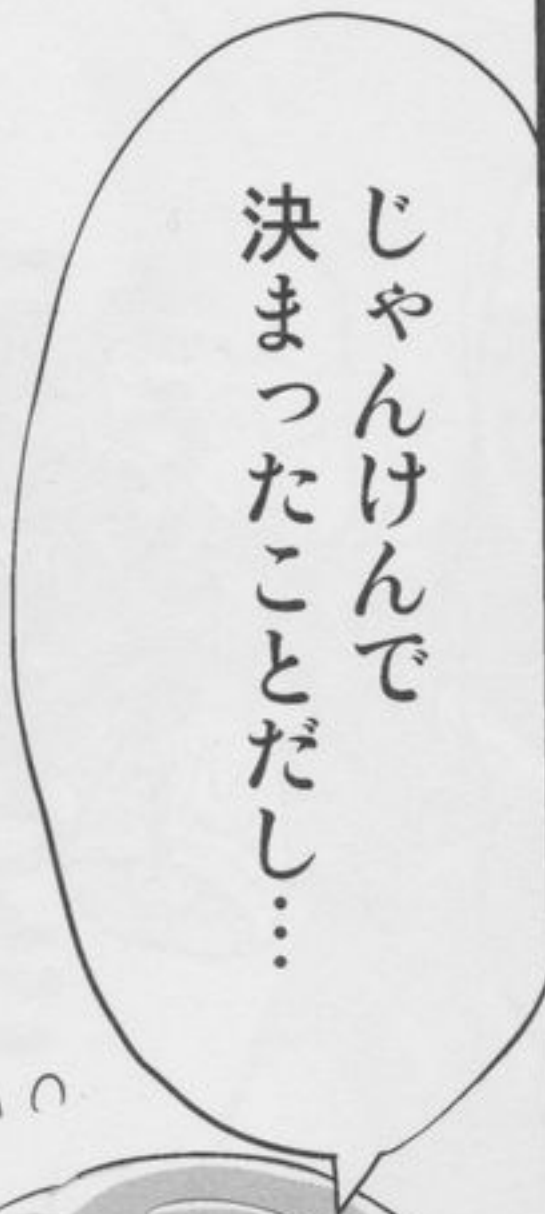 じゃんけんで
決まったことだし…